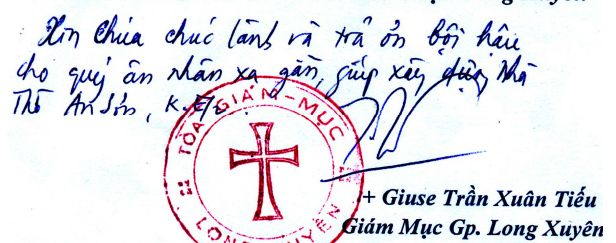 Xin Chúa chúc lành và trả ơn bội hậu
cho quý ân nhân xa gần, giúp xây dựng Nhà
Thờ An Sơn,
TÒA GIÁM-MỤC
LONG XUYÊN
+ Giuse Trần Xuân Tiếu
Giám Mục Gp. Long Xuyên